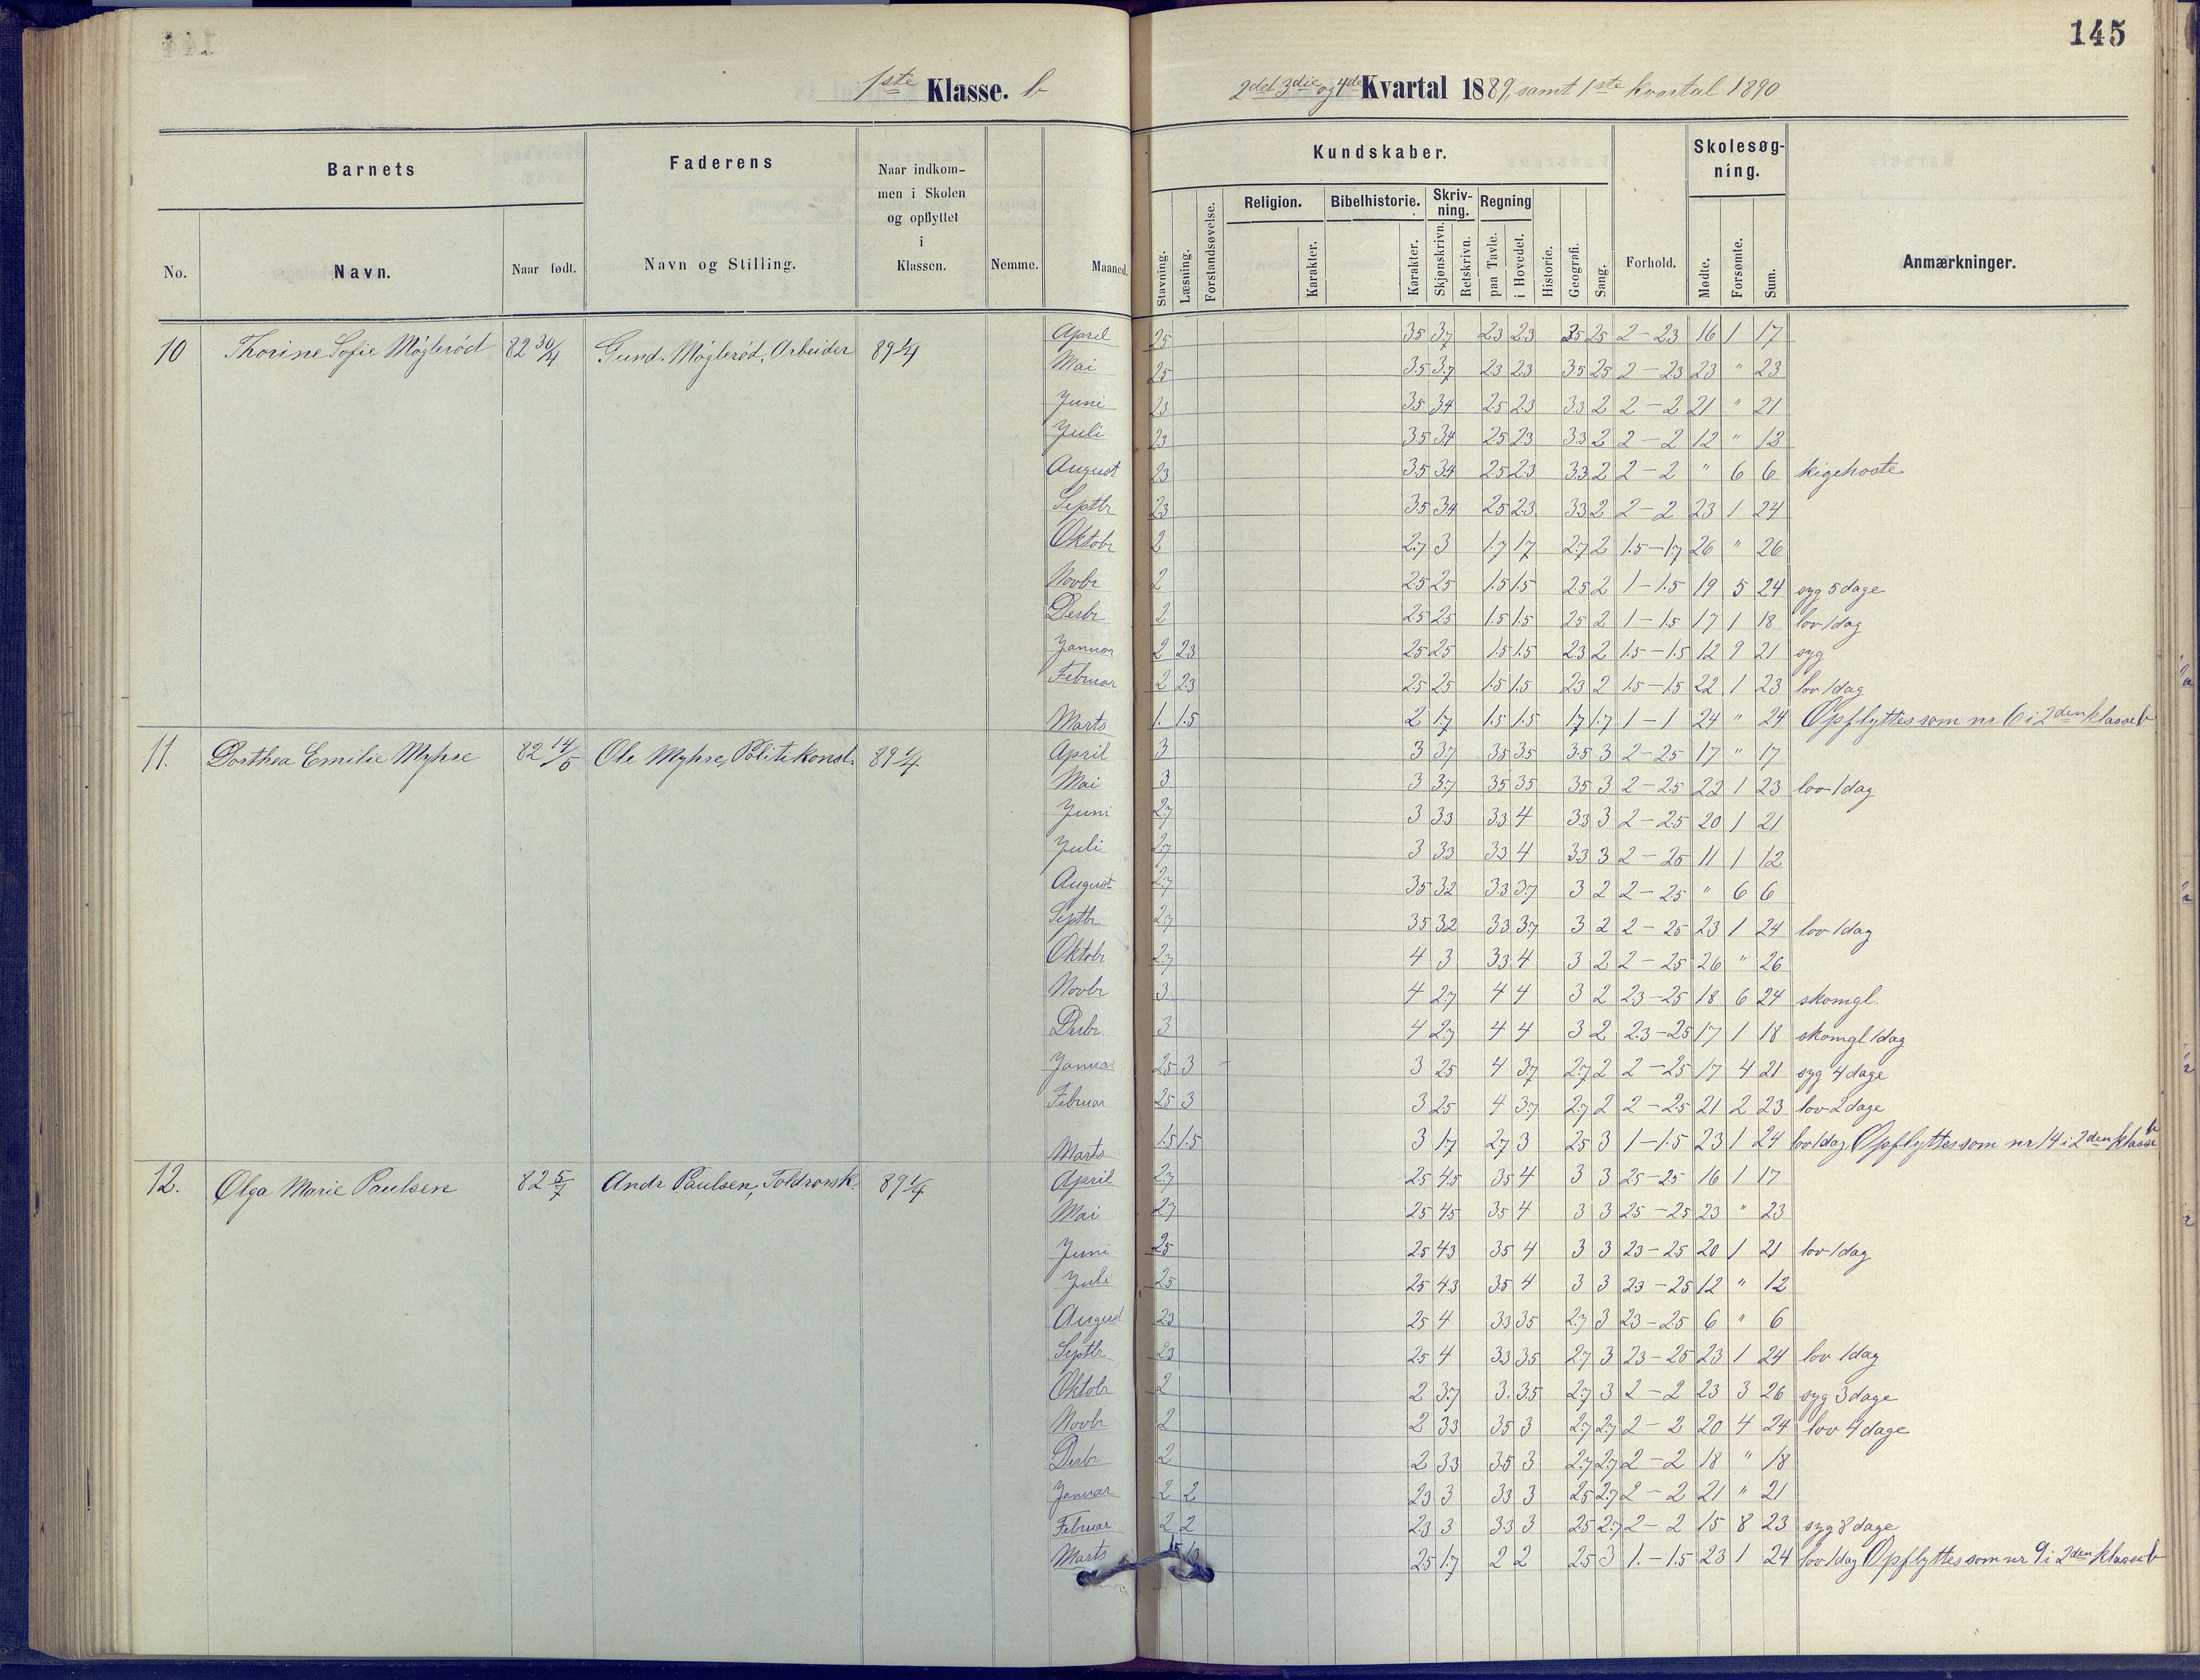 145
1ste Klasse. b
2det 3die og 4de Kvartal 1889, samt 1ste kvartal 1890
Barnets
Faderens
Naar indkom-
men i Skolen
og opflyttet
i
Klassen.
No.
Navn.
Naar født.
Navn og Stilling.
Nemme.
Maaned.
Kundskaber.
Skolesøg-
ning.
Stavning.
Læsning.
Forstandsøvelse.
Religion.
Karakter.
Bibelhistorie.
Karakter.
Skriv-
ning.
Skjønskrivn.
Retskrivn.
Regning
paa Tavle.
i Hovedet.
Historie.
Geografi.
Sang.
Forhold.
Mødte.
Forsømte.
Sum.
Anmærkninger.
10 Thorine Sofie Møglerød 82 30/4 Gund. Møglerød, Arbeider 89 1/4
April 25 35 37 23 23 35 25 2-23 16 1 17
Mai 25 35 37 23 23 35 25 2-23 23 " 23
Juni 23 35 34 25 23 33 2 2-2 21 " 21
Juli 23 35 34 25 23 33 2 2-2 12 " 12
August 23 35 34 25 23 33 2 2-2 " 6 6 kigehoste
Septbr 23 35 34 25 23 33 2 2-2 23 1 24
Oktobr 2 27 3 17 17 27 2 1.5-1.7 26 " 26
Novbr 2 25 25 1.5 1.5 25 2 1-1.5 19 5 24 syg 5 dage
Desbr 2 25 25 1.5 1.5 25 2 1-1.5 17 1 18 lov 1 dag
Januar 2 23 25 25 1.5 1.5 23 2 1.5-1.5 12 9 21 syg
Februar 2 23 25 25 1.5 1.5 23 2 1.5-1.5 22 1 23 lov 1 dag
Marts 1. 1.5 2 1.7 1.5 1.5 1.7 1.7 1-1 24 " 24 Opflyttes som nr 6 i 2den klasse b
11. Dorthea Emilie Myhre 82 14/5 Ole Myhre, Politikonst. 89 1/4
April 3 3 37 35 35 3.5 3 2-25 17 " 17
Mai 3 3 37 35 35 35 3 2-25 22 1 23 lov 1 dag
Juni 27 3 33 33 4 33 3 2-25 20 1 21
Juli 27 3 33 33 4 33 3 2-25 11 1 12
August 27 35 32 33 37 3 2 2-25 " 6 6
Septbr 27 35 32 33 37 3 2 2-25 23 1 24 lov 1 dag
Oktobr 27 4 3 33 4 3 2 2-25 26 " 26
Novbr 3 4 27 4 4 3 2 23-25 18 6 24 skomgl.
Desbr 3 4 27 4 4 3 2 2.3-25 17 1 18 skomgl 1 dag
Januar 25 3 3 25 4 37 27 2 2-25 17 4 21 syg 4 dage
Februar 25 3 3 25 4 37 27 2 2-25 21 2 23 lov 2 dage
Marts 1.5 1.5 3 1.7 27 3 25 3 1-1.5 23 1 24 lov 1 dag Opflyttes som nr 14 i 2den klasse b
12. Olga Marie Paulsen 82 5/7 Andr Paulsen, Toldronsk. 89 1/4
April 27 25 45 35 4 3 3 25-25 16 1 17
Mai 27 25 45 35 4 3 3 25-25 23 " 23
Juni 25 25 43 35 4 3 3 23-25 20 1 21 lov 1 dag
Juli 25 25 43 35 4 3 3 23-25 12 " 12
August 23 25 4 33 35 27 3 23-25 6 " 6
Septbr 23 25 4 33 35 27 3 23-25 23 1 24 lov 1 dag
Oktobr 2 2 37 3. 35 27 3 2-2 23 3 26 syg 3 dage
Novbr 2 2 33 35 3 27 27 2-2 20 4 24 lov 4 dage
Desbr 2 2 33 35 3 27 27 2-2 18 " 18
Januar 2 2 23 3 33 3 25 27 2-2 21 " 21
Februar 2 2 23 3 33 3 25 27 2-2 15 8 23 syg 8 dage
Marts 25 1.7 2 2 25 3 1.-1.5 23 1 24 lov 1 dag Opflyttes som nr 9 i 2den klasse b